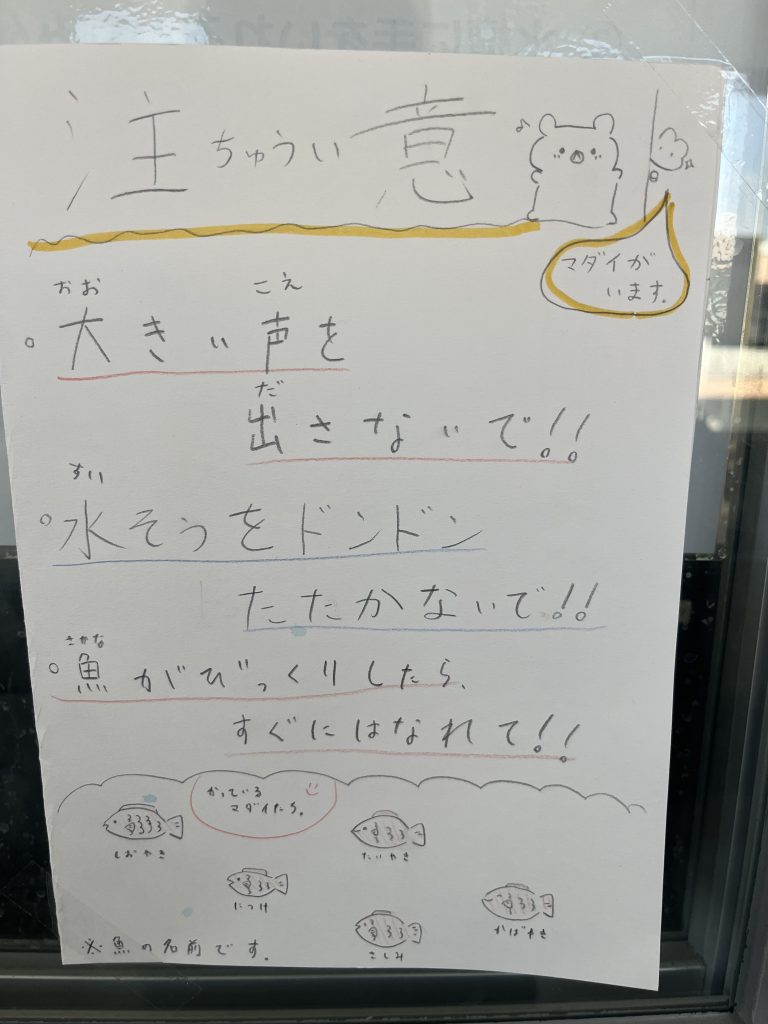 注ちゅうい意
マダイが
います。
おお こえ
。大きい声を
だ
出さないで!!
すい
。水そうをドンドン
たたかないで!!
さかな
。魚がびっくりしたら、
すぐにはなれて!!
かっている
マダイたち。
しおやき
たいやき
につけ
さしみ
かばやき
※魚の名前です。